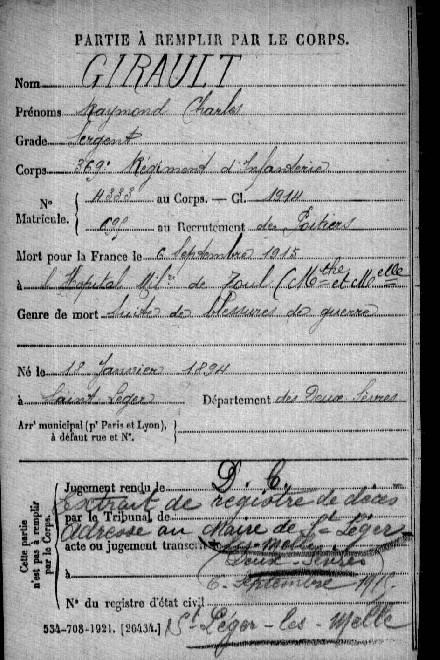 PARTIE À REMPLIR PAR LE CORPS.
Nom GIRAULT
Prénoms Raymond Charles
Grade Sergent
Corps 369e Régiment d'Infanterie
N° Matricule. { 4333 au Corps. — Cl. 1914
699 au Recrutement de Poitiers
Mort pour la France le 6 Septembre 1915
à l'Hopital Milre de Toul (Mthe et Mlle
Genre de mort Suite de blessures de guerre
Né le 18 Janvier 1894
à Saint Léger Département des Deux Sèvres
Arrt municipal (pr Paris et Lyon), à défaut rue et N°. }
Cette partie n'est pas à remplir par le Corps.
Jugement rendu le D. C.
Extrait de registre de décès
par le Tribunal de
adresse au Maire de St Léger
acte ou jugement transcrit les-Melle
à (Deux-Sèvres)
6 Septembre 1915
N° du registre d'état civil
534-708-1921. [26434.] St Léger-les-Melle